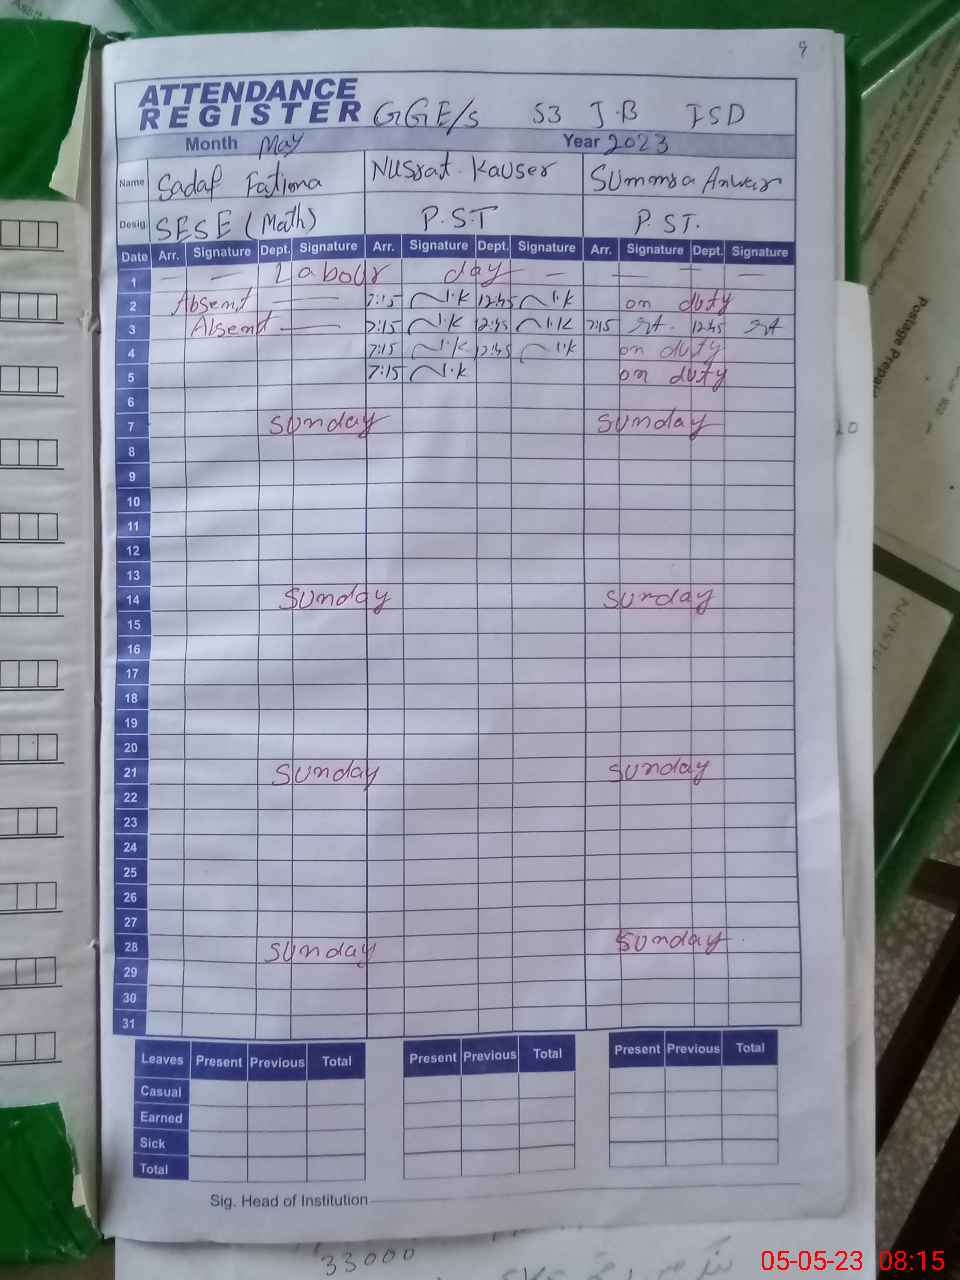 9
ATTENDANCE
REGISTER GGE/s 53 J.B FSD
Month May Year 2023
Name Sadaf Fatima Nusrat Kauser Summra Anwar
Desig. SESE (Math) P.S.T P.S.T.
Date Arr. Signature Dept. Signature Arr. Signature Dept. Signature Arr. Signature Dept. Signature
1 — — Labour day — — — —
2 Absent — 7:15 N.K 12:45 N.K on duty
3 Absent — 7:15 N.K 12:45 N.K 7:15 12:45
4 7:15 N.K 12:45 N.K on duty
5 7:15 N.K on duty
6
7 Sunday Sunday
8
9
10
11
12
13
14 Sunday Sunday
15
16
17
18
19
20
21 Sunday Sunday
22
23
24
25
26
27
28 Sunday Sunday
29
30
31
Leaves Present Previous Total Present Previous Total Present Previous Total
Casual
Earned
Sick
Total
Sig. Head of Institution
33000
Postage Prepaid
05-05-23 08:15